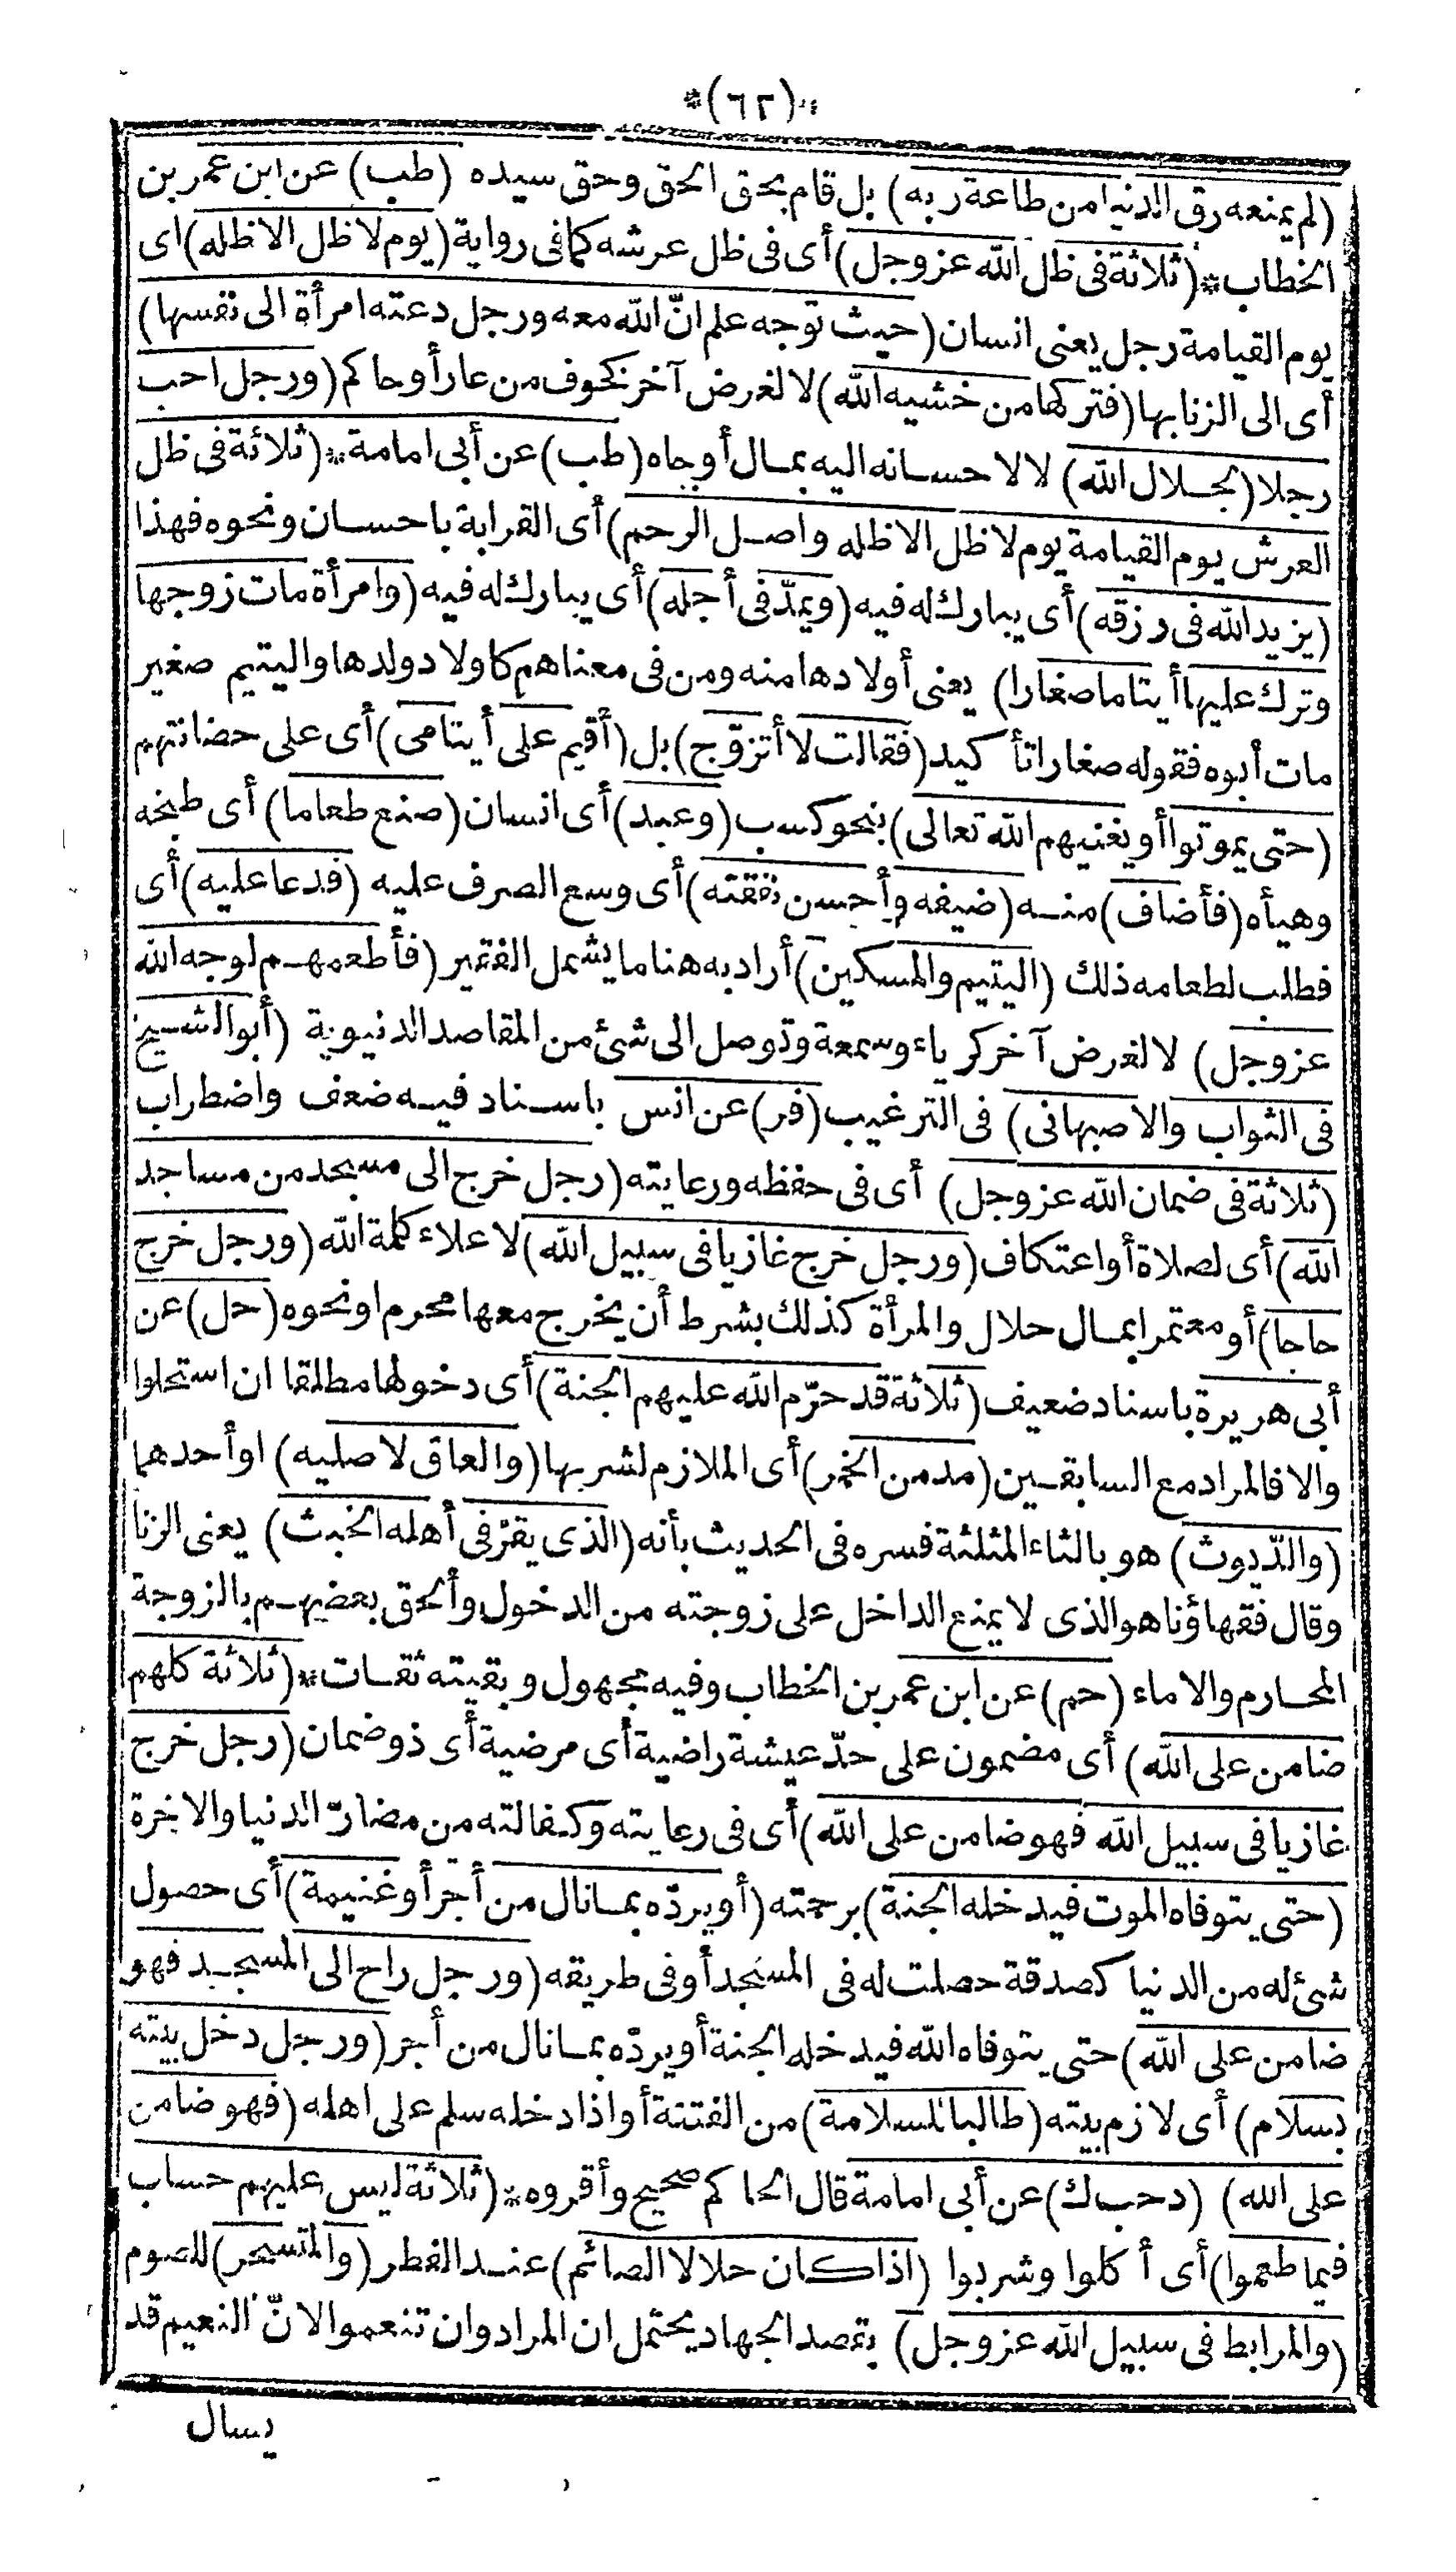 *(٦٢)*
(لم يمنعه رق الدنيا من طاعة ربه) بل قام بحق الحق وحق سيده (طب) عن ابن عمر بن
الخطاب*(ثلاثة فى ظل الله عز وجل) أى فى ظل عرشه كما فى رواية (يوم لا ظل الا ظله) اى
يوم القيامة رجل يعنى انسان (حيث توجه علم انّ الله معه ورجل دعته امرأة الى نفسها)
أى الى الزنا بها (فتركها من خشيه الله) لا لغرض آخر نخوف من عار أو حاكم (ورجل احب
رجلا (بجلال الله) لا لاحسانه اليه بمال أو جاه (طب) عن أبى امامة*(ثلاثة فى ظل
العرش يوم القيامة يوم لا ظل الا ظله واصل الرحم) أى القرابة باحسان ونحوه فهذا
(يزيد الله فى رزقه) أى يبارك له فيه (ويمدّ فى أجله) أى يبارك له فيه (وامرأة مات زوجها
وترك عليها أيتاما صغارا) يعنى أولادها منه ومن فى معناهم كاولاد ولدها واليتيم صغير
مات أبوه فقوله صغارا تأكيد (فقالت لا أتزوّج) بل (أقيم على أيتامى) أى على حضانتهم
(حتى يموتوا أو يغنيهم الله تعالى) بنحو كسب (وعبد) أى انسان (صنع طعاما) أى طبخه
وهيأه (فأضاف) منه (ضيفه وأحسن نفقته) أى وسع الصرف عليه (فدعا عليه) أى
فطلب لطعامه ذلك (اليتيم والمسكين) أراد به هنا ما يشمل الفقير (فأطعمهم لوجه الله
عز وجل) لا لغرض آخر كرياء وسمعة وتوصل الى شئ من المقاصد الدنيوية (أبو الشيخ
فى الثواب والاصبهانى) فى الترغيب (فر) عن انس باسناد فيه ضعف واضطراب
(ثلاثة فى ضمان الله عز وجل) أى فى حفظه ورعايته (رجل خرج الى مسجد من مساجد
الله) أى لصلاة أو اعتكاف (ورجل خرج غازيا فى سبيل الله) لاعلاء كلمة الله (ورجل خرج
حاجا) أو معتمرا بمال حلال والمرأة كذلك بشرط أن يخرج معها محرم او نحوه (حل) عن
أبى هريرة باسناد ضعيف (ثلاثة قد حرّم الله عليهم الجنة) أى دخولها مطلقا ان استحلوا
والا فالمراد مع السابقين (مدمن الخمر) أى الملازم لشربها (والعاق لاصليه) او أحدهما
(والدّيوث) هو بالثاء المثلثة فسره فى الحديث بأنه (الذى يقرّ فى أهله الخبث) يعنى الزنا
وقال فقهاؤنا هو الذى لا يمنع الداخل على زوجته من الدخول وألحق بعضهم بالزوجة
المحارم والاماء (حم) عن ابن عمر بن الخطاب وفيه مجهول وبقيته ثقات*(ثلاثة كلهم
ضامن على الله) أى مضمون على حدّ عيشة راضية أى مرضية أى ذو ضمان (رجل خرج
غازيا فى سبيل الله فهو ضامن على الله) أى فى رعايته وكفالته من مضارّ الدنيا والاخرة
(حتى يتوفاه الموت فيدخله الجنة) برحمته (أو يردّه بما نال من أجر أو غنيمة) أى حصول
شئ له من الدنيا كصدقة حصلت له فى المسجد أو فى طريقه (ورجل راح الى المسجد فهو
ضامن على الله) حتى يتوفاه الله فيدخله الجنة أو يردّه بما نال من أجر (ورجل دخل بيته
بسلام) أى لازم بيته (طالبا للسلامة) من الفتنة أو اذا دخله سلم على اهله (فهو ضامن
على الله) (د حب ك) عن أبى امامة قال الحاكم صحيح وأقروه*(ثلاثة ليس عليهم حساب
فيما طعموا) أى أكلوا وشربوا (اذا كان حلالا الصائم) عند الفطر (والمتسحر) للصوم
(والمرابط فى سبيل الله عز وجل) بقصد الجهاد يحتمل ان المراد وان تنعموا لانّ النعيم قد
يسال